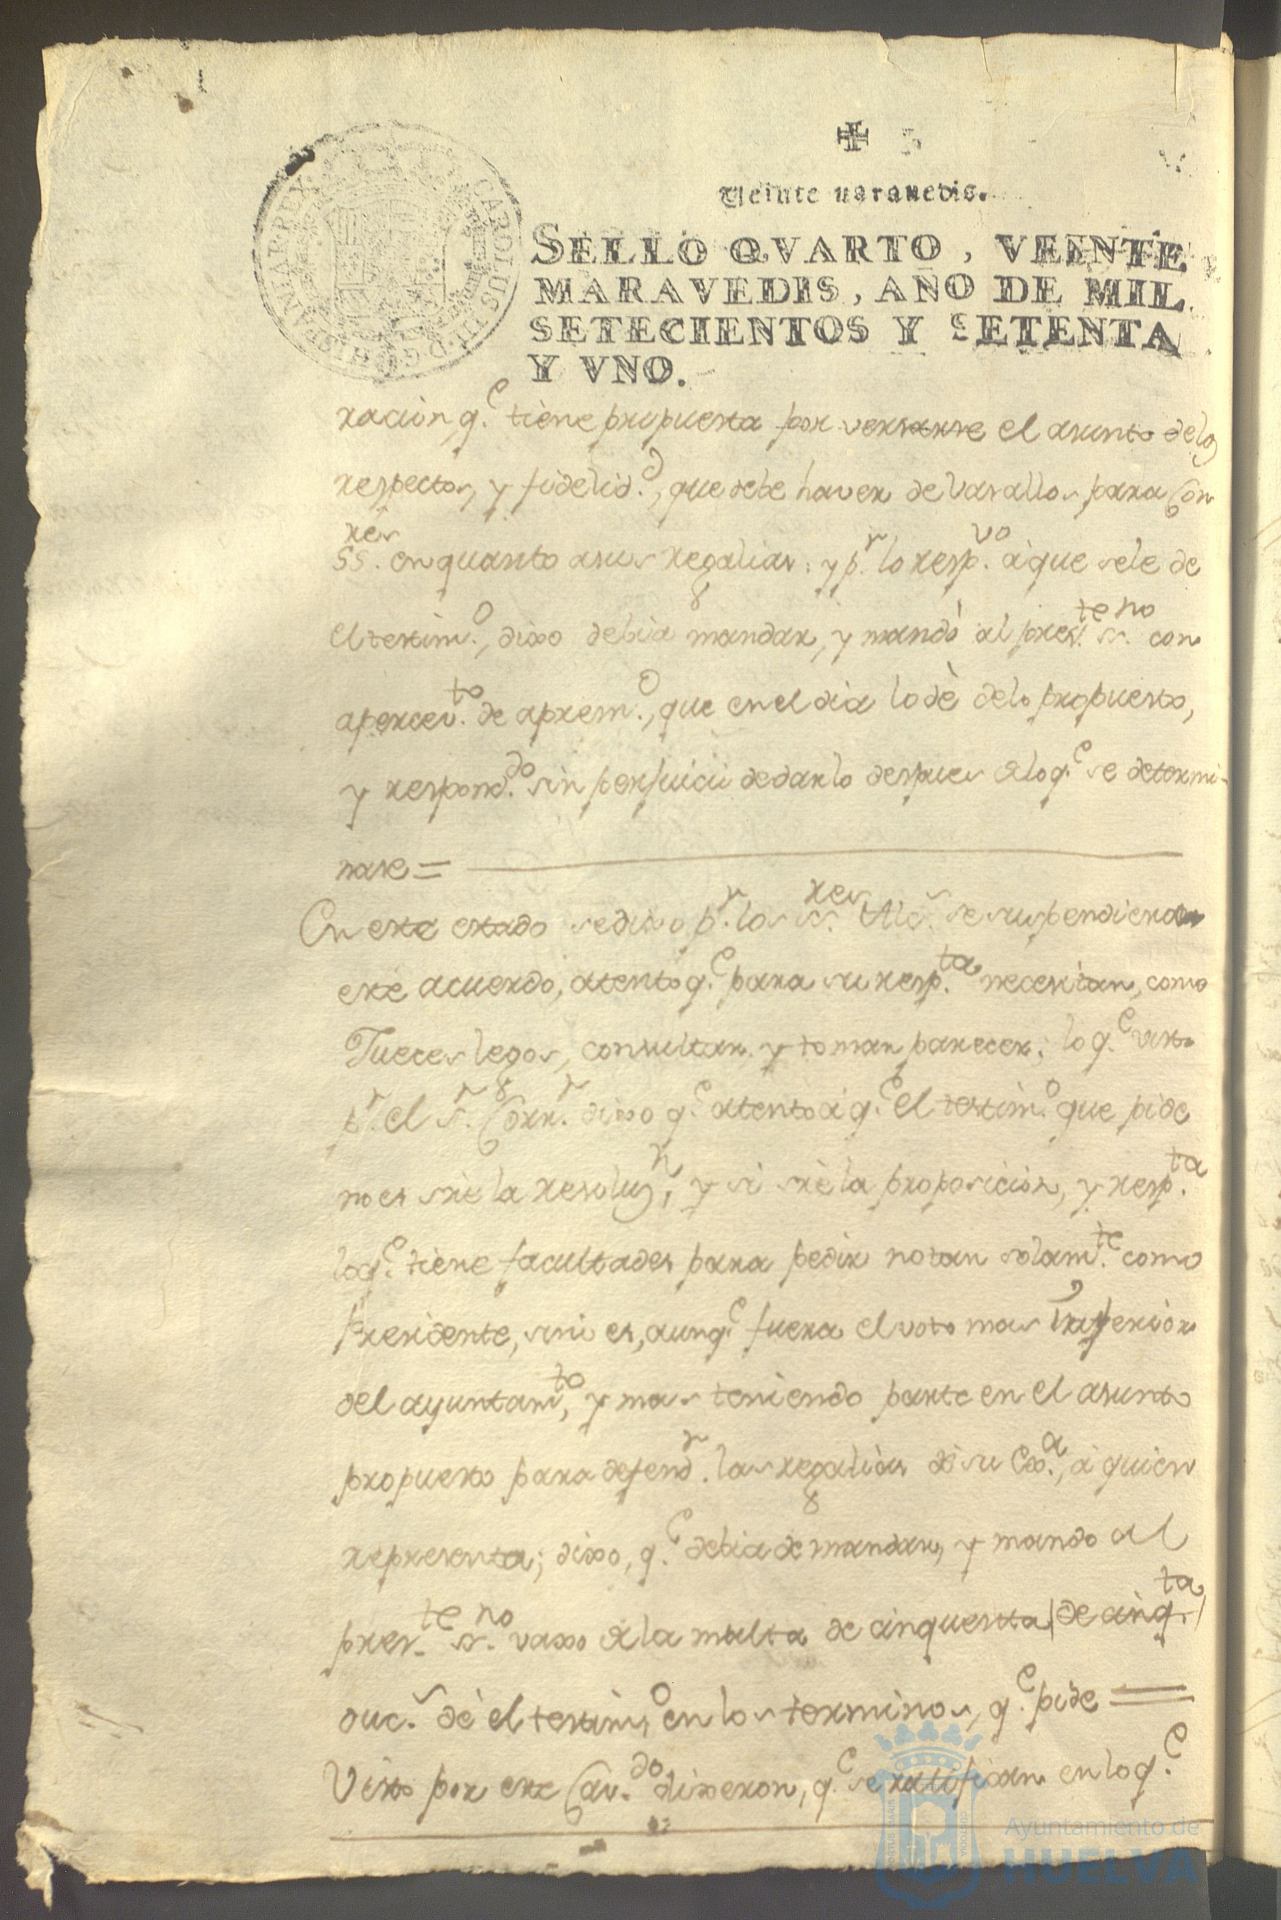 CAROLUS III. D. G. HISPANIAR. REX.
Veinte maravedis.
SELLO QVARTO, VEINTE
MARAVEDIS, AÑO DE MIL
SETECIENTOS Y SETENTA
Y VNO.
racion q.e tiene propuesta por versarse el asunto delos
respectos, y fidelid.d, que debe haver de Vasallos para con
SS.res en quanto asus regalias; y p.r lo resp.vo à que sele de
el testim.o, dixo debia mandar, y mandò al pres.te ss.no con
apercev.to de aprem.o, que en el dia lo dè delo propuesto,
y respond.do sin perjuicio dedarlo despues de loq.e se determi-
nase =
En este estado sedixo p.r los ss.res Alc.s se suspendiera
este acuerdo, atento q.e para su resp.ta necesitan, como
Jueces legos, consultar y tomar parecer; lo q.e visto
p.r el s.r Corr.r dixo q.e atento à q.e el testim.o que pide
no es sre la resoluz.n, y si sre la proposicion, y resp.ta
loq.e tiene facultades para pedir no tan solam.te como
Presidente, sino es, aunq.e fuera el voto mas Inferior
del ayuntam.to, y mas teniendo parte en el asunto
propuesto para defend.r las regalias de su Ex.a, à quien
representa; dixo, q.e debia de mandar, y mando al
pres.te ss.no vaxo de la multa de cinquenta (de cinq.ta)
duc.s dè el testim.o en los terminos, q.e pide =
Visto por este Cav.do dixeron, q.e se ratifican en lo q.e
Ayuntamiento de
HUELVA